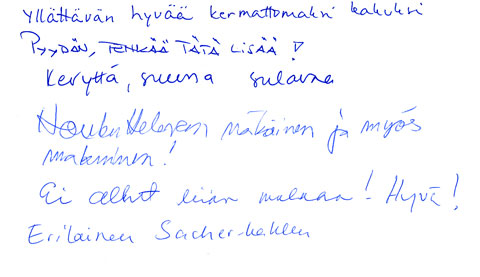 Yllättävän hyvää kermattomaksi kakuksi
PyyDÄN, TEHKÄÄ TÄTÄ LISÄÄ!
Kevyttä, suussa sulavaa
Houkuttelevan näköinen ja myös
makuinen!
Ei ollut liian makeaa! Hyvä!
Erilainen Sacher-kakku